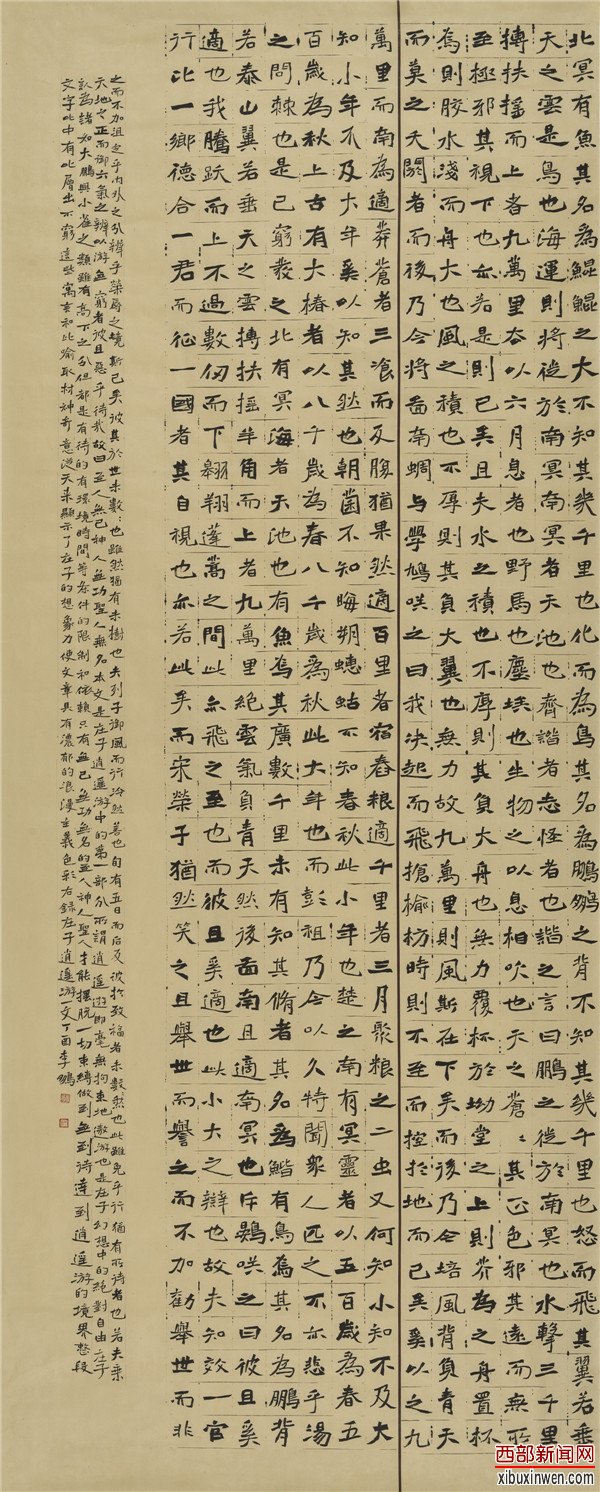 北冥有魚其名為鯤鯤之大不知其幾千里也化而為鳥其名為鵬鵬之背不知其幾千里也怒而飛其翼若垂
天之雲是鳥也海運則將徙於南冥南冥者天池也齊諧者志怪者也諧之言曰鵬之徙於南冥也水擊三千里
摶扶搖而上者九萬里去以六月息者也野馬也塵埃也生物之以息相吹也天之蒼〻其正色邪其遠而無所
至極邪其視下也亦若是則已矣且夫水之積也不厚則其負大舟也無力覆杯於坳堂之上則芥為之舟置杯
焉則膠水淺而舟大也風之積也不厚則其負大翼也無力故九萬里則風斯在下矣而後乃今培風背負青天
而莫之夭閼者而後乃今將圖南蜩与學鳩咲之曰我決起而飛搶榆枋時則不至而控於地而已矣奚以之九
萬里而南為適莽蒼者三飡而反腹猶果然適百里者宿舂糧適千里者三月聚糧之二虫又何知小知不及大
知小年不及大年奚以知其然也朝菌不知晦朔蟪蛄不知春秋此小年也楚之南有冥靈者以五百歲為春五
百歲為秋上古有大椿者以八千歲為春八千歲為秋此大年也而彭祖乃今以久特聞衆人匹之不亦悲乎湯
之問棘也是已窮髮之北有冥海者天池也有魚焉其廣數千里未有知其脩者其名為鯤有鳥焉其名為鵬背
若泰山翼若垂天之雲摶扶搖羊角而上者九萬里絕雲氣負青天然後圖南且適南冥也斥鴳咲之曰彼且奚
適也我騰躍而上不過數仞而下翱翔蓬蒿之間此亦飛之至也而彼且奚適也此小大之辯也故夫知效一官
行比一鄉德合一君而征一國者其自視也亦若此矣而宋榮子猶然笑之且舉世而譽之而不加勸舉世而非
之而不加沮定乎內外之分辯乎榮辱之境斯已矣彼其於世未數〻也雖然猶有未樹也夫列子御風而行泠然善也旬有五日而后反彼於致福者未數然也此雖免乎行猶有所待者也若夫乘
天地之正而御六氣之辯以游無窮者彼且惡乎待哉故曰至人無己神人無功聖人無名本文是莊子逍遙游中的第一部分所謂逍遙遊即毫無拘束地遨游也是莊子幻想中的絕對自由莊子
認為諸如大鵬與小雀之類雖有高下之分但都是有待的有環境時間等条件的限制和依賴只有無己無功無名的至人神人聖人才能擺脫一切束縛做到無到待達到逍遥游的境界整段
文字比中有比層出不窮這些寓言和比喻取材神奇意從天來顯示了莊子的想象力使文章具有濃郁的浪漫主義色彩右錄莊子逍遥游一文丁酉李鵬
西部新闻网
xibuxinwen.com